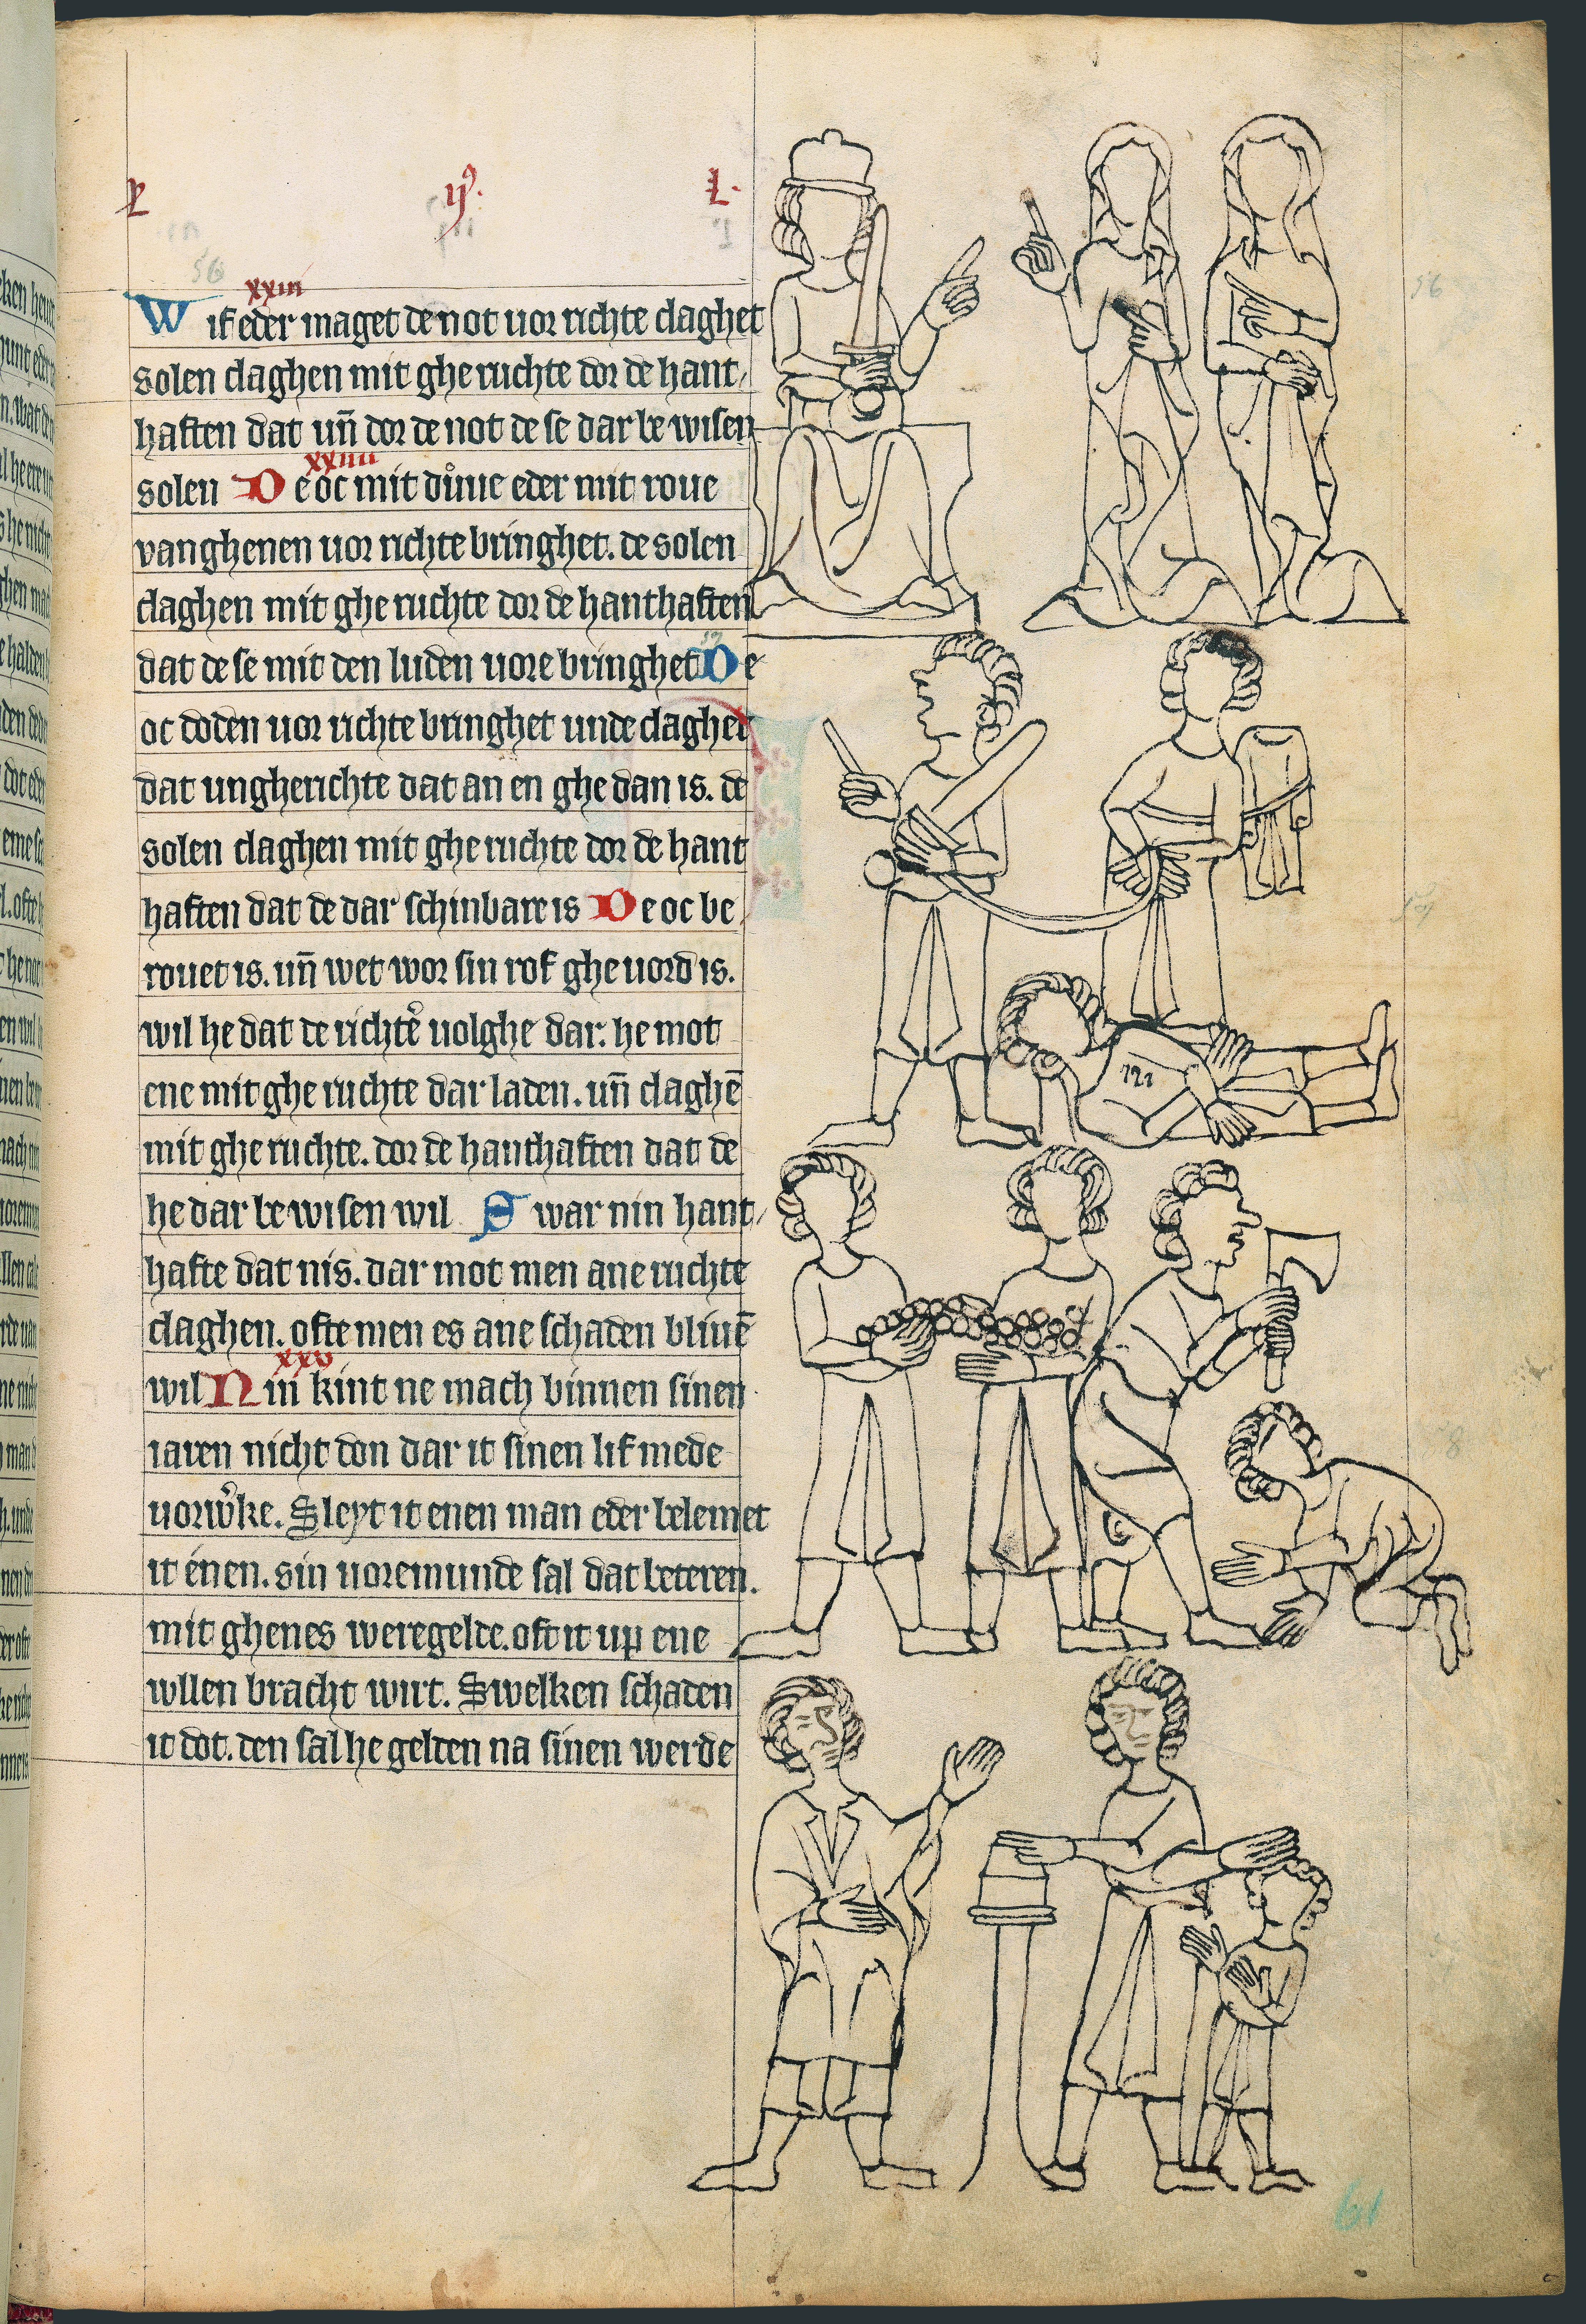 ij⁹.
L.
56
xxiii
Wif eder maget de not uor richte claghet
solen claghen mit gheruchte dor de hant-
haften dat uñ dor de not de se dar bewisen
xxiiii
solen De oc mit důuie eder mit roue
vanghenen uor richte bringhet. de solen
claghen mit gheruchte dor de hanthaften
dat de se mit den luden uore bringhet De
oc doden uor richte bringhet unde claghet
dat ungherichte dat an en ghedan is. de
solen claghen mit gheruchte dor de hant
haften dat de dar schinbare is De oc be
rouet is. uñ wet wor sin rof gheuord is.
wil he dat de richtẽ uolghe dar. he mot
ene mit gheruchte dar laden. uñ claghẽ
mit gheruchte. dor de hanthaften dat de
he dar bewisen wil Swar nin hant-
hafte dat nis. dar mot men ane ruchte
claghen. ofte men es ane schaden bliuẽ
xxv
wil Nin kint ne mach binnen sinen
iaren nicht don dar it sinen lif mede
uorwͦke. Sleyt it enen man eder belemet
it enen. sin uoremunde sal dat beteren.
mit ghenes weregelde. oft it up ene
wllen bracht wirt. Swelken schaden
it dot. den sal he gelden na sinen werde
56
61